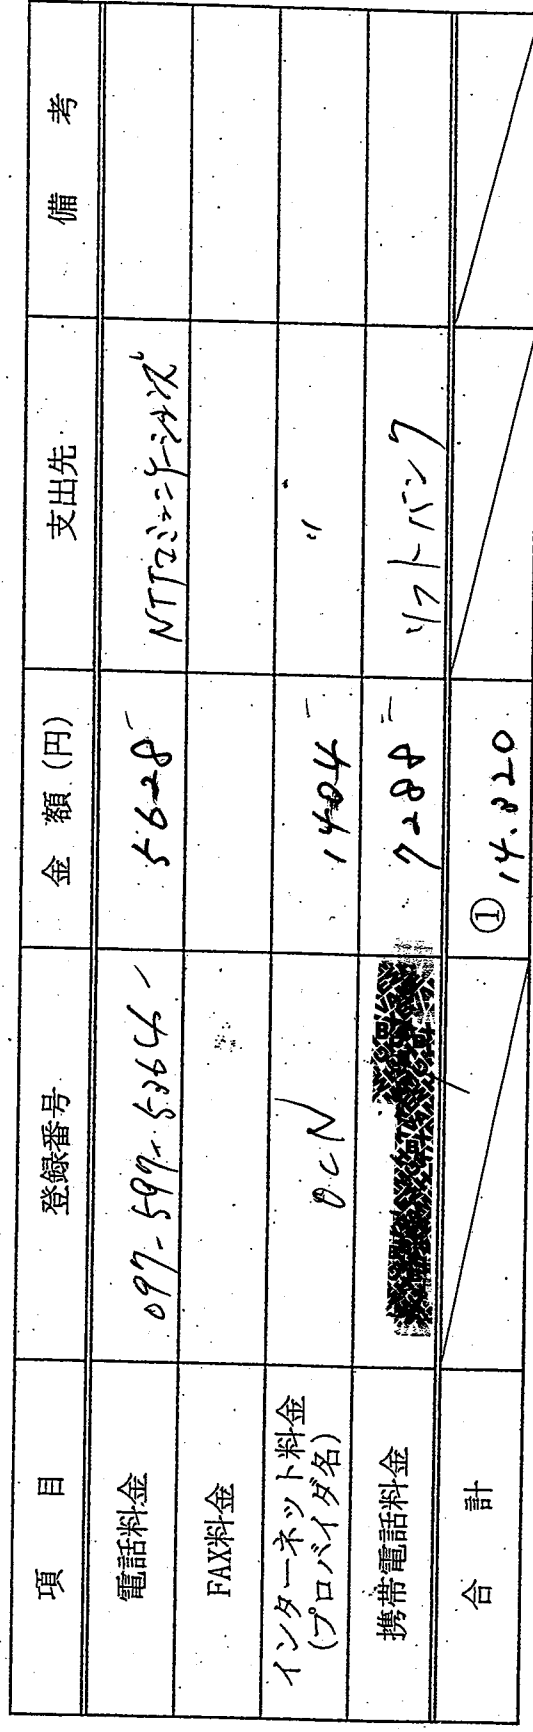 項 目 登録番号 金 額 (円) 支出先 備 考
電話料金 097-597-5364 5628- NTTコミュニケーションズ
FAX料金
インターネット料金 OCN 1404- 〃
(プロバイダ名)
携帯電話料金 7288- ソフトバンク
合 計 ① 14.320